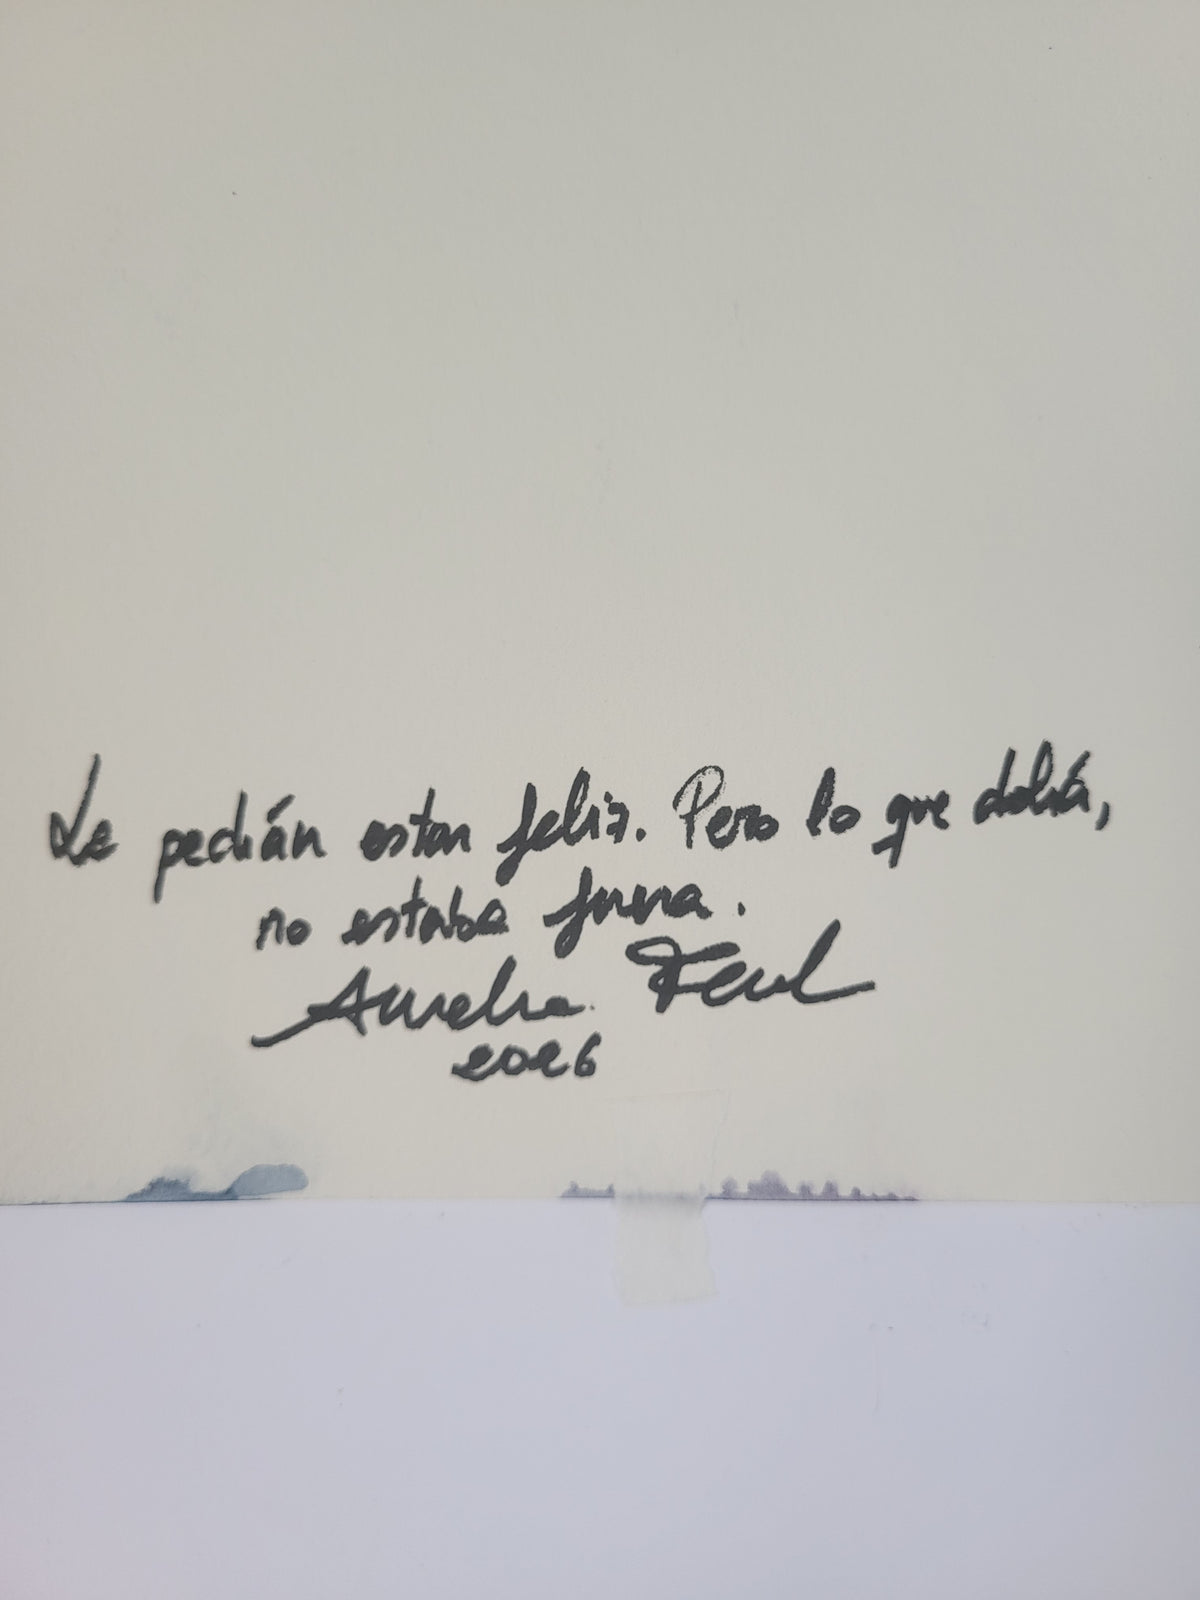 Le pedián estar feliz. Pero lo que doliá,
no estaba fuera.
Aurelia
2026